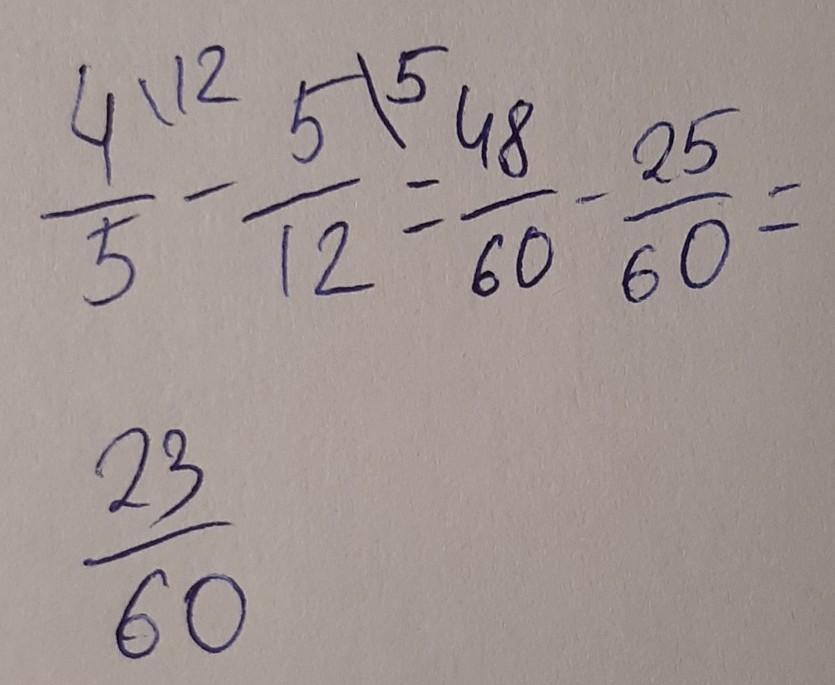 4\12/5 - 5\5/12 = 48/60 - 25/60 =
23/60